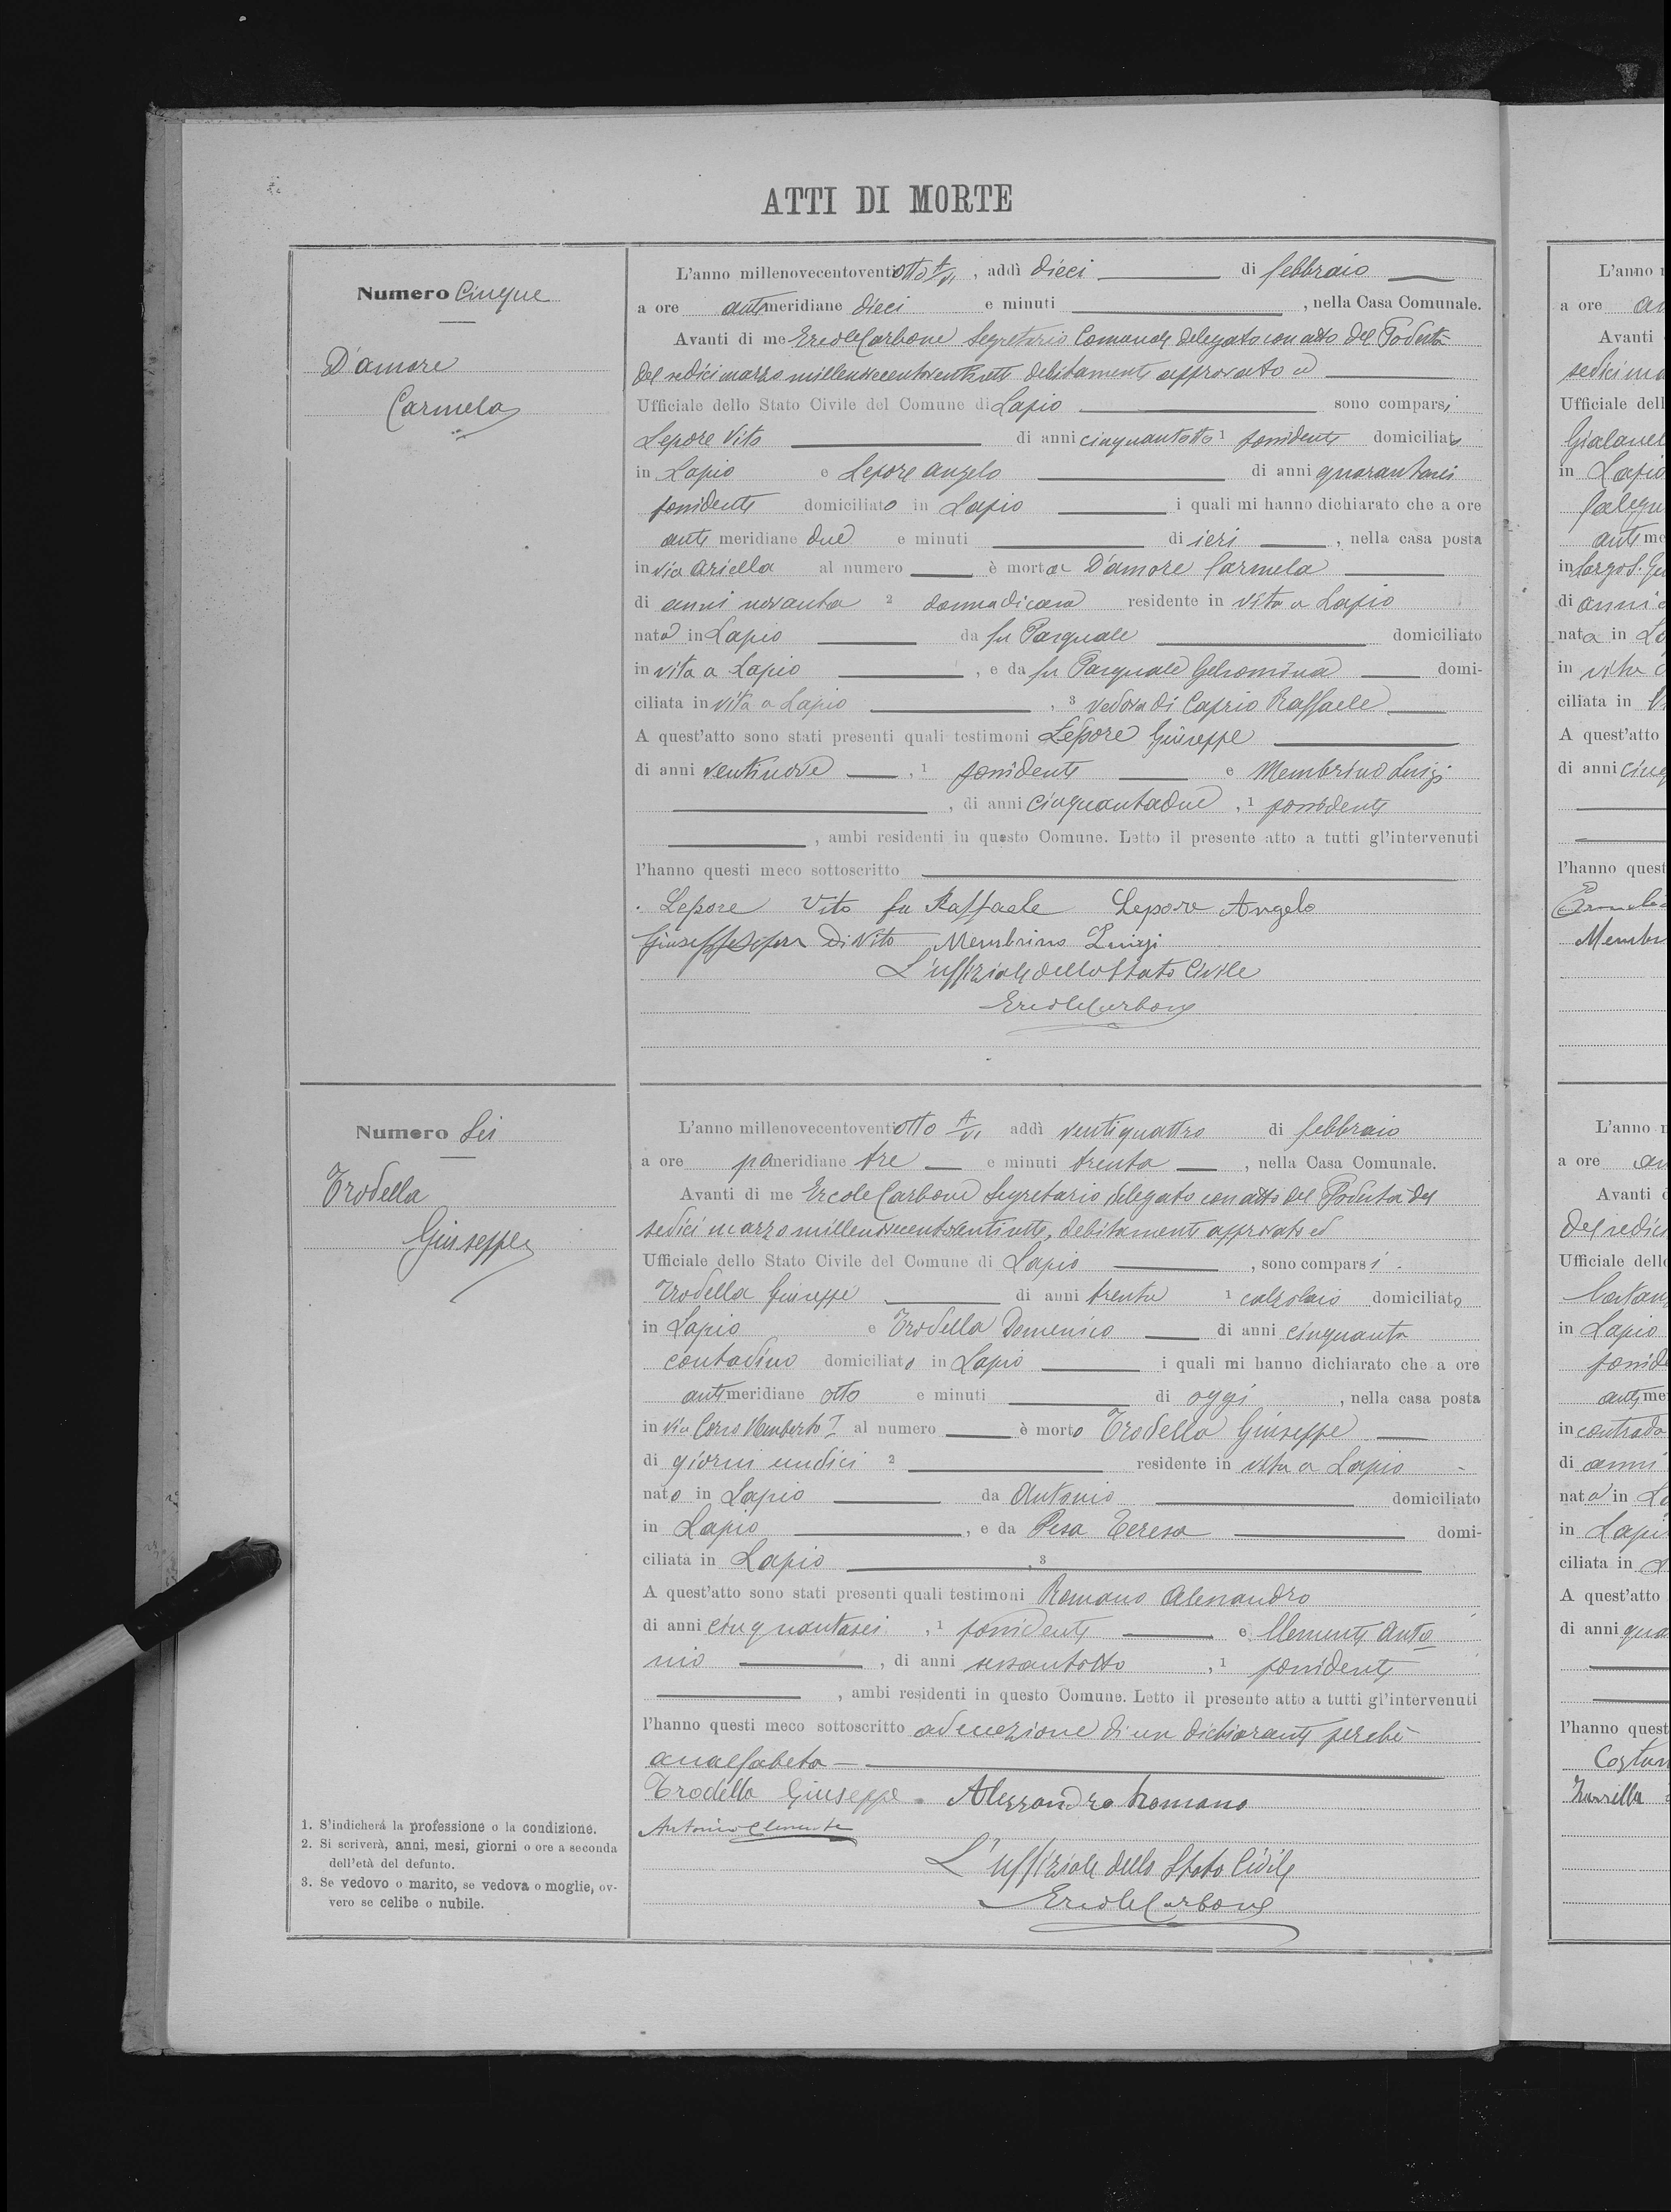 ATTI DI MORTE
Numero Cinque
D'amore
Carmela
L'anno millenovecentoventiotto A/VI, addì dieci di febbraio
a ore antimeridiane dieci e minuti , nella Casa Comunale.
Avanti di me Ercole Carbone Segretario Comunale delegato con atto del Podestà
del sedici marzo millenovecentoventisette debitamente approvato ed
Ufficiale dello Stato Civile del Comune di Lapio sono comparsi
Lepore Vito di anni cinquantotto 1 possidente domiciliato
in Lapio e Lepore Angelo di anni quarantasei
possidente domiciliato in Lapio i quali mi hanno dichiarato che a ore
anti meridiane due e minuti di ieri , nella casa posta
in via Ariella al numero è morta D'amore Carmela
di anni novanta 2 donna di casa residente in vita a Lapio
nata in Lapio da fu Pasquale domiciliato
in vita a Lapio , e da fu Pasquale Gelsomina domi-
ciliata in vita a Lapio , 3 vedova di Caprio Raffaele
A quest'atto sono stati presenti quali testimoni Lepore Giuseppe
di anni ventinove , 1 possidente e Membrino Luigi
, di anni cinquantadue , 1 possidente
, ambi residenti in questo Comune. Letto il presente atto a tutti gl'intervenuti
l'hanno questi meco sottoscritto
Lepore Vito fu Raffaele Lepore Angelo
Giuseppe Lepore di Vito Membrino Luigi
L'uffiziale dello Stato Civile
Ercole Carbone
Numero Sei
Trodella
Giuseppe
L'anno millenovecentoventiotto A/VI addì ventiquattro di febbraio
a ore pomeridiane tre e minuti trenta , nella Casa Comunale.
Avanti di me Ercole Carbone Segretario delegato con atto del Podestà del
sedici marzo millenovecentoventisette, debitamente approvato ed
Ufficiale dello Stato Civile del Comune di Lapio , sono comparsi
Trodella Giuseppe di anni trenta 1 calzolaio domiciliato
in Lapio e Trodella Domenico di anni cinquanta
contadino domiciliato in Lapio i quali mi hanno dichiarato che a ore
antimeridiane otto e minuti di oggi , nella casa posta
in via Corso Umberto I al numero è morto Trodella Giuseppe
di giorni undici 2 residente in vita a Lapio
nato in Lapio da Antonio domiciliato
in Lapio , e da Pesa Teresa domi-
ciliata in Lapio , 3
A quest'atto sono stati presenti quali testimoni Romano Alessandro
di anni cinquantasei , 1 possidente e Clemente Anto
nio , di anni sessantotto , 1 possidente
, ambi residenti in questo Comune. Letto il presente atto a tutti gl'intervenuti
l'hanno questi meco sottoscritto ad eccezione di un dichiarante perchè
analfabeta
Trodella Giuseppe Alessandro Romano
Antonio Clemente
L'uffiziale dello Stato Civile
Ercole Carbone
1. S'indicherà la professione o la condizione.
2. Si scriverà, anni, mesi, giorni o ore a seconda
dell'età del defunto.
3. Se vedovo o marito, se vedova o moglie, ov-
vero se celibe o nubile.
L'anno
a ore
Avanti
Ufficiale dell
in Lapio
nata in
ciliata in
A quest'atto
di anni
l'hanno quest
L'anno
a ore
Avanti
Ufficiale dell
in Lapio
in contrada
di anni
nata in
in Lapio
ciliata in
A quest'atto
di anni
l'hanno quest